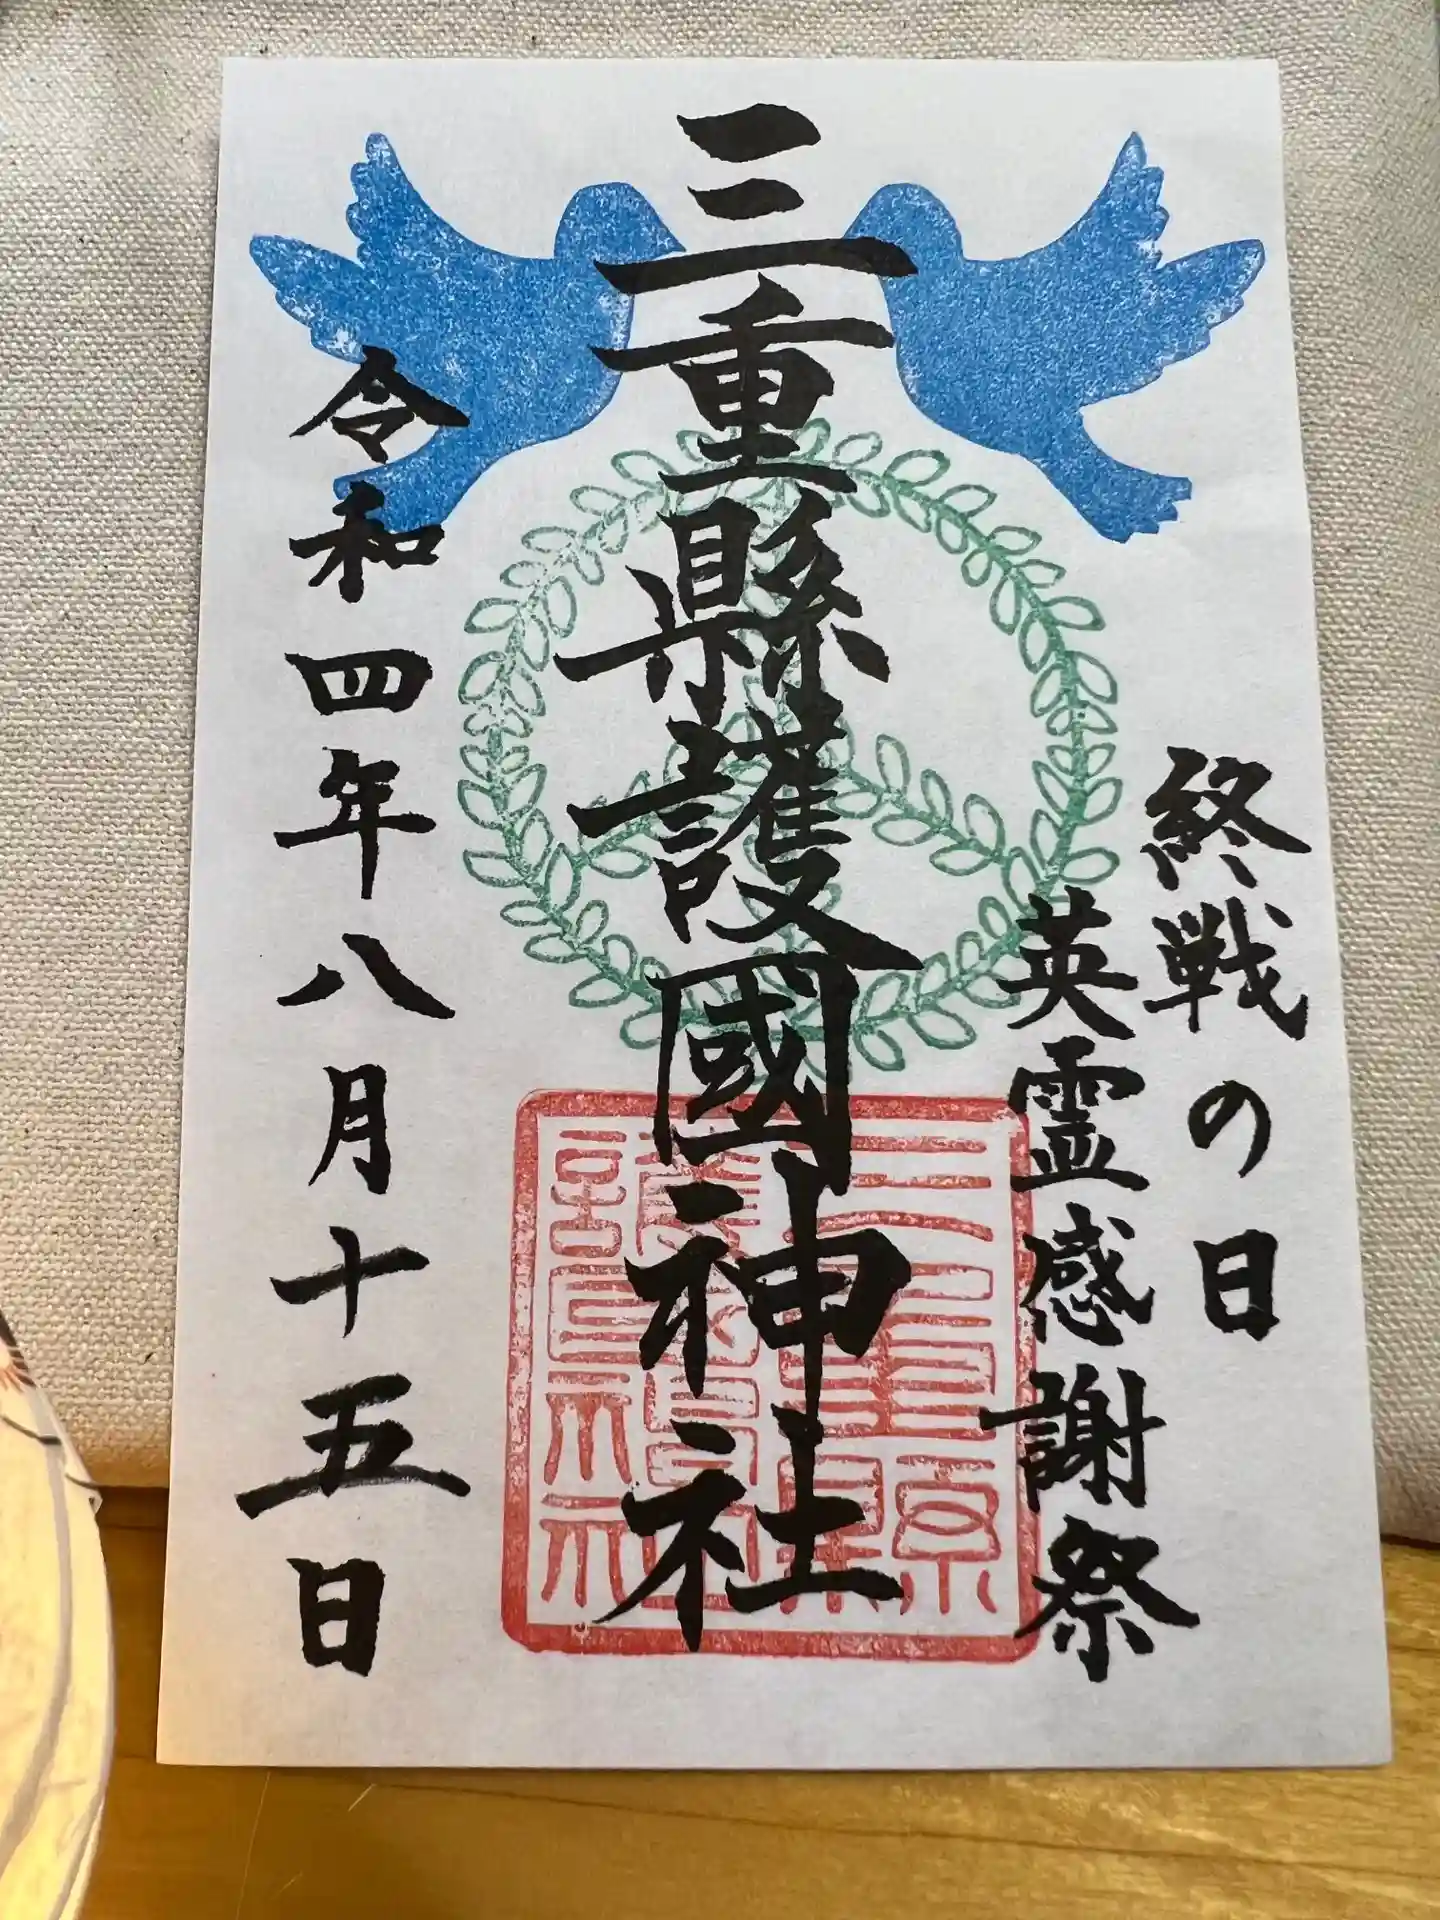 終戦の日
英霊感謝祭
三重縣護國神社
三重縣
護國神社
令和四年八月十五日